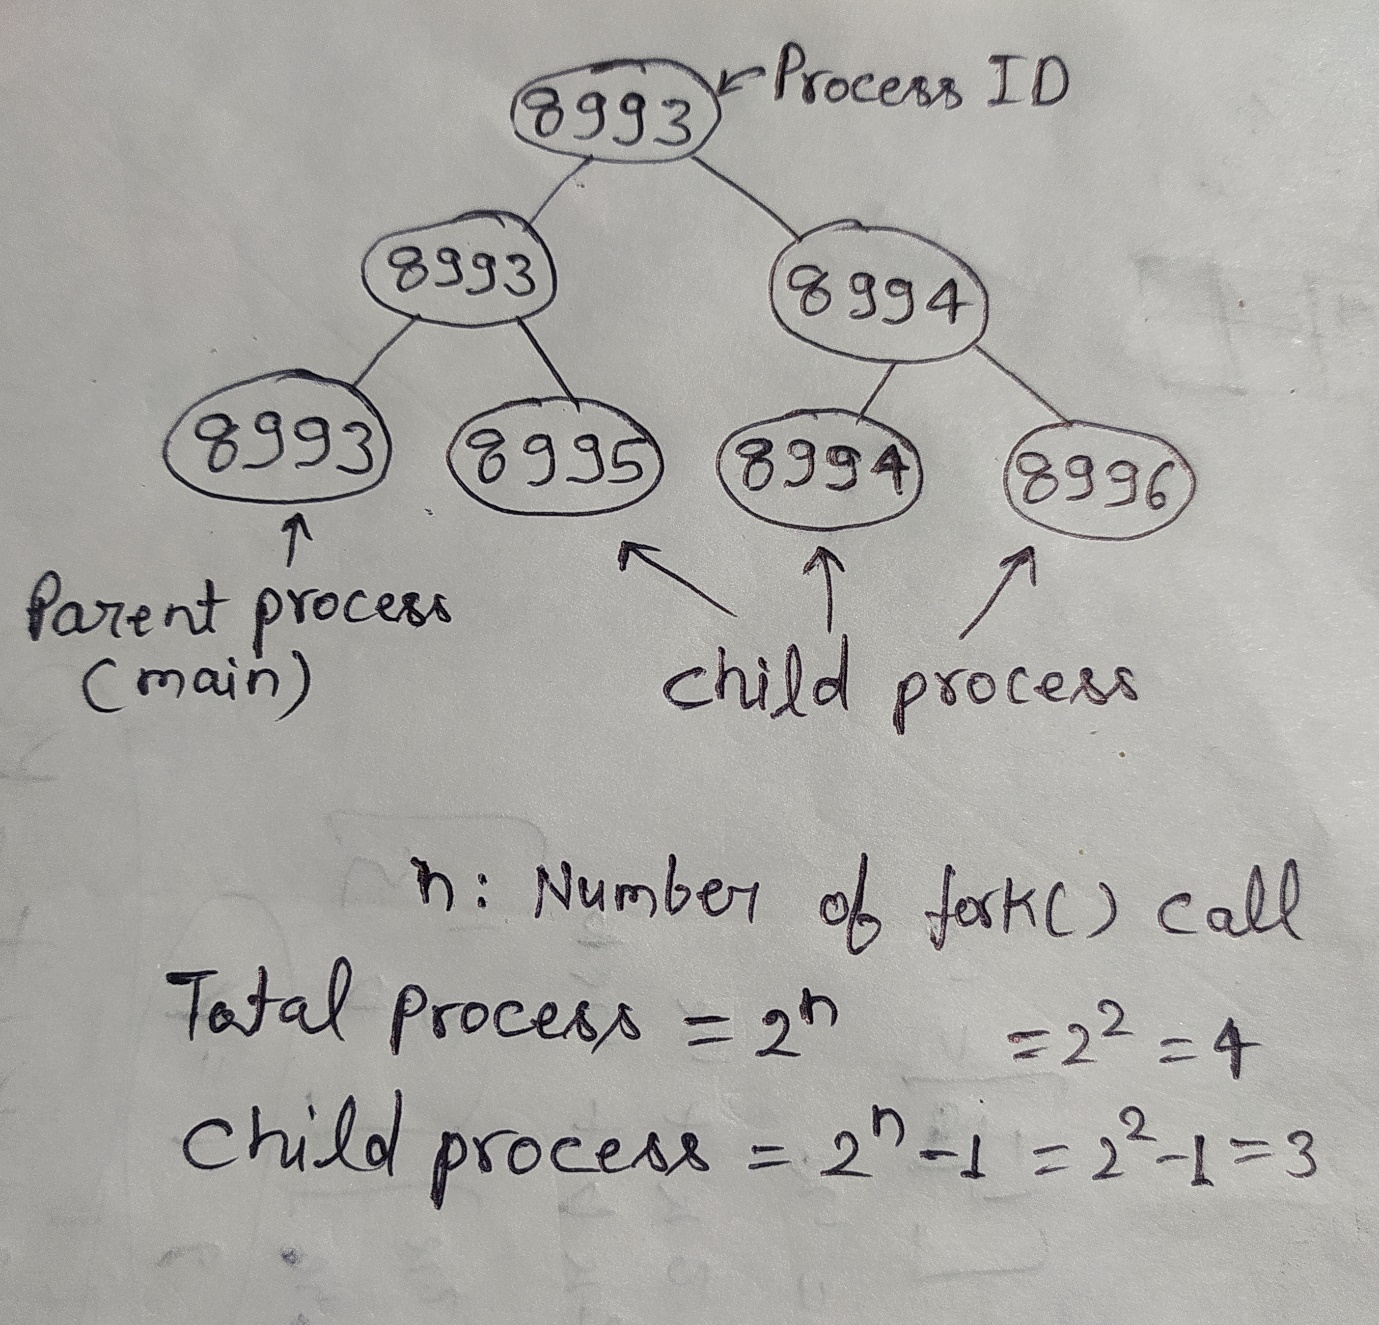 8993 Process ID
8993 8994
8993 8995 8994 8996
Parent process
(main)
child process
n: Number of fork() call
Total process = 2ⁿ = 2² = 4
child process = 2ⁿ-1 = 2²-1 = 3